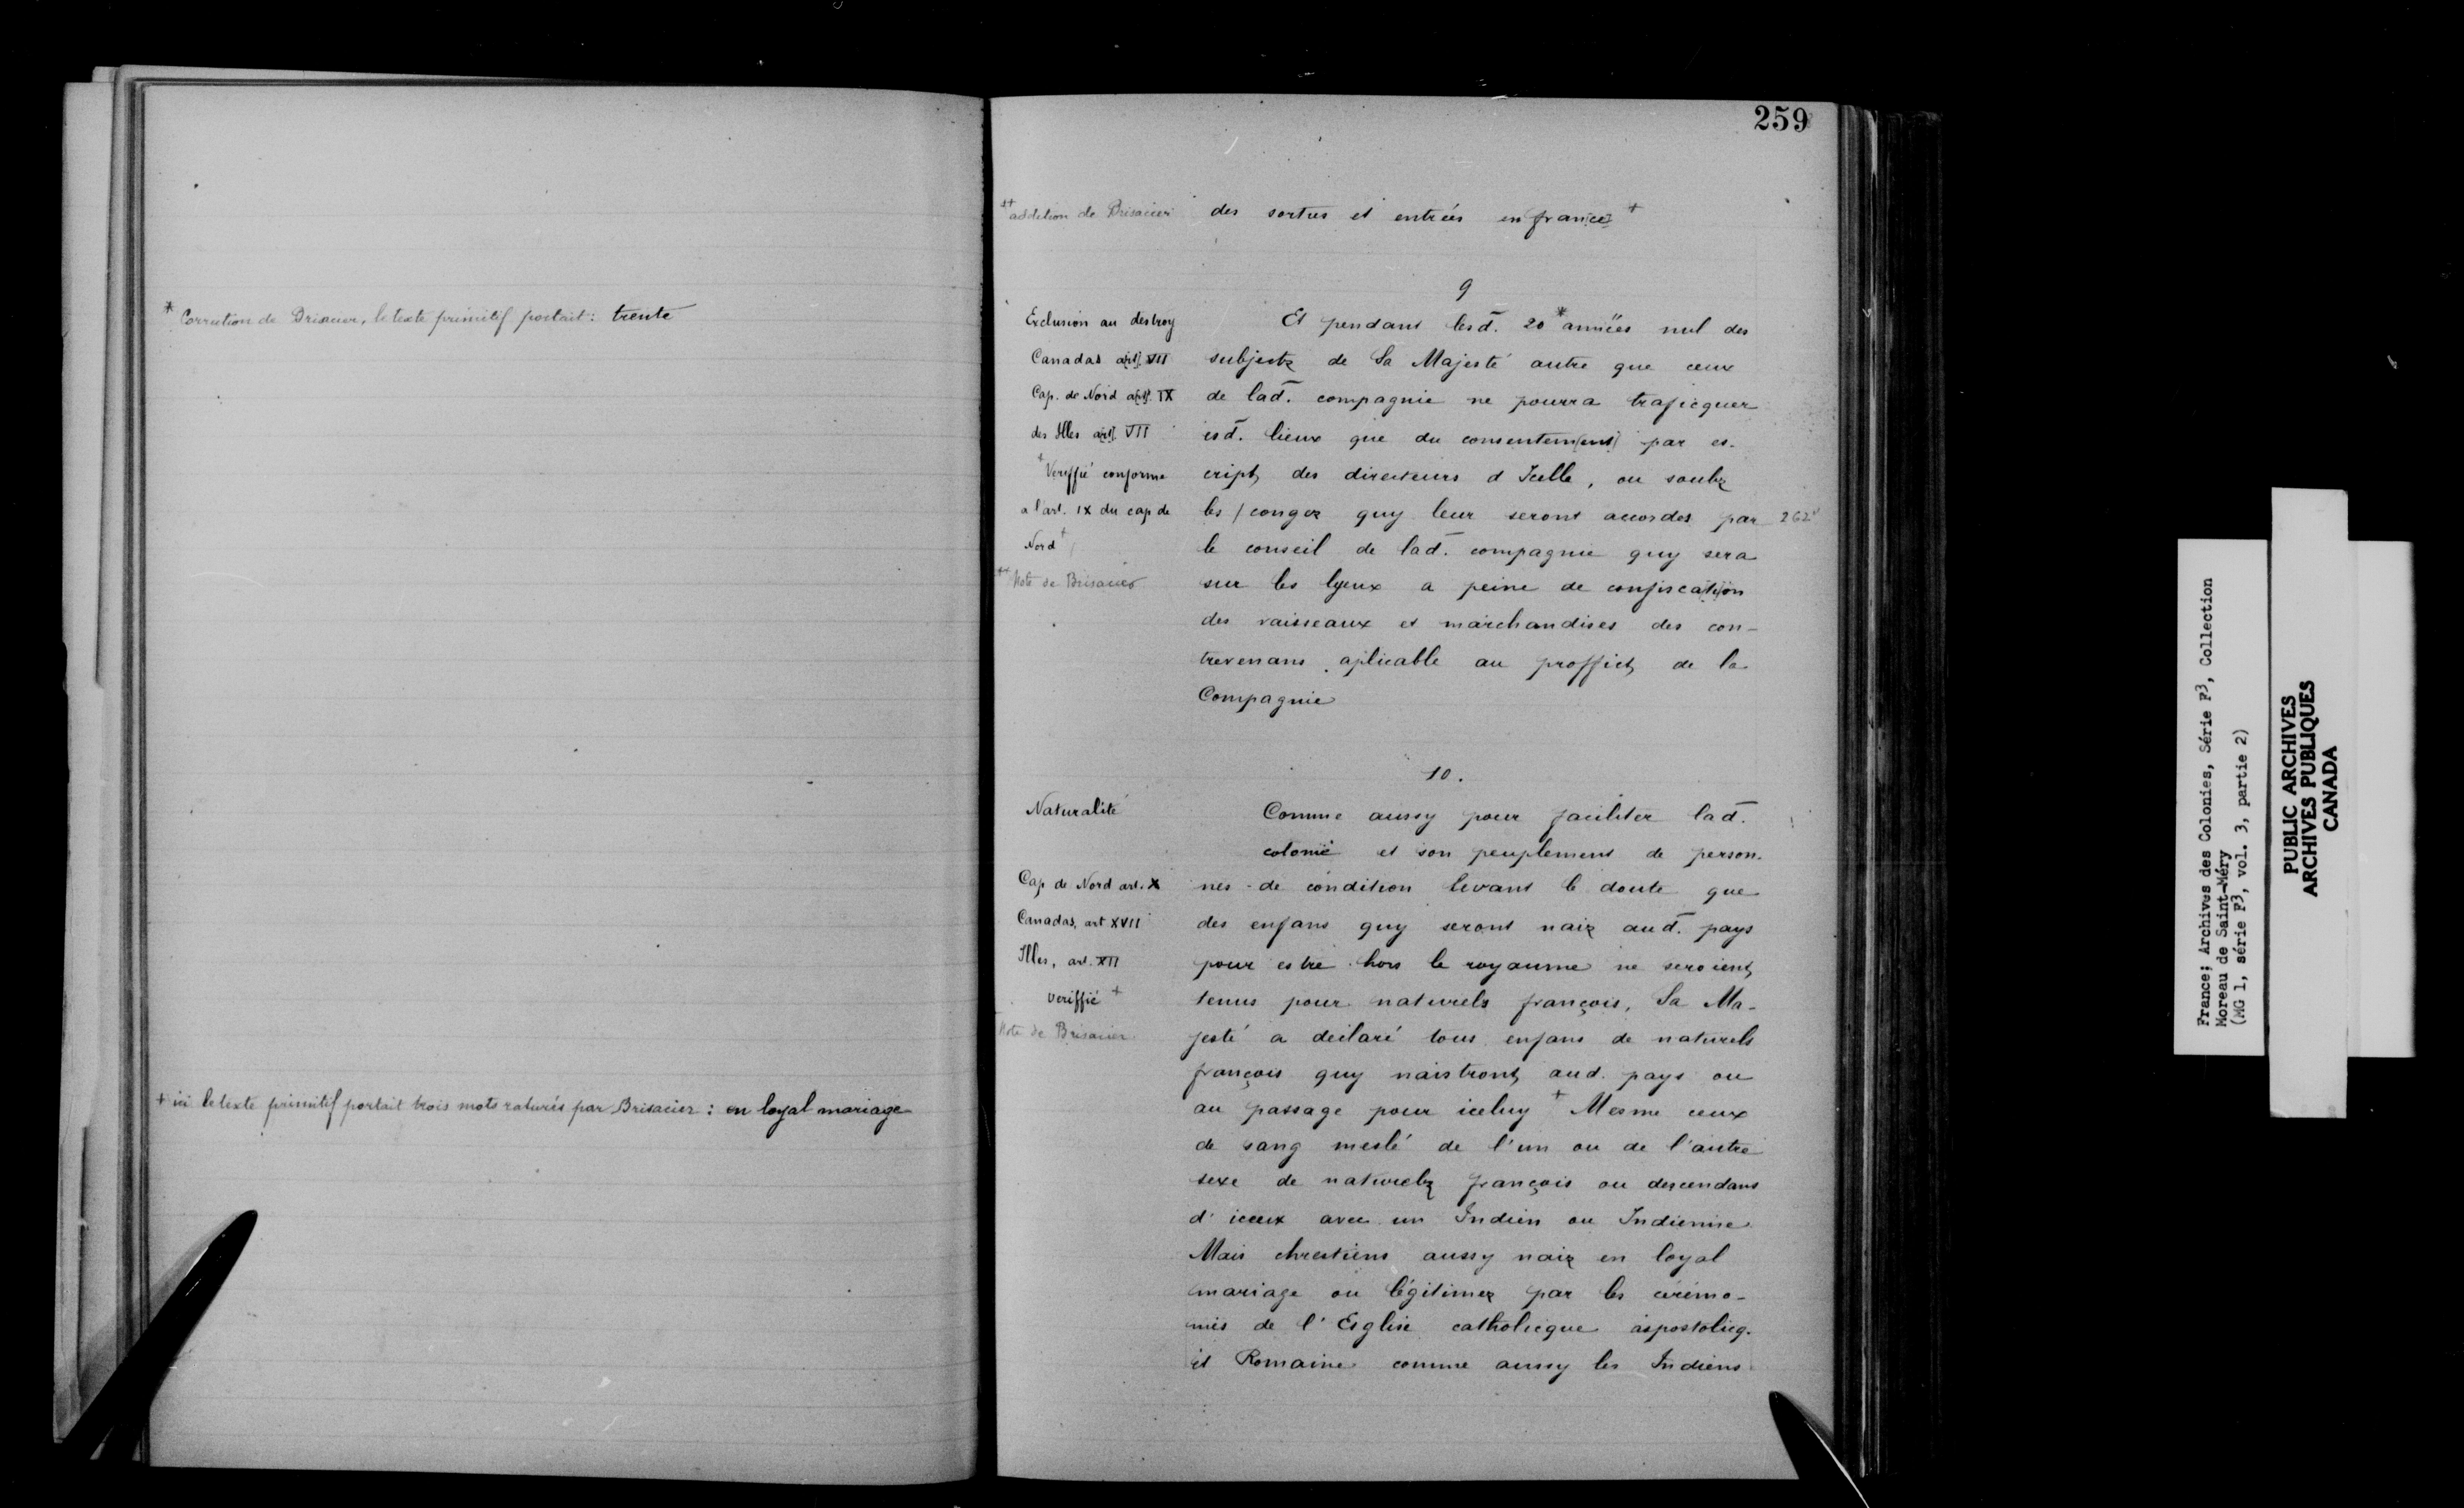 * Correction de Brisacier, le texte primitif portait : trente
+ ici le texte primitif portait trois mots raturés par Brisacier : en loyal mariage
259
++ addition de Brisacier
des sortus et entrées en fran[ce] +
9
Exclusion au destroy
Canadas a[rt]. VII
Cap. de Nord a[rt]. IX
des Illes a[rt]. VII
+ Veriffié conforme
a l'art. IX du cap de
Nord +
++ Note de Brisacier
Et pendant lesd. 20 * années nul des
subjectz de Sa Majesté autre que ceux
de lad. compagnie ne pourra traficquer
esd. lieux que du consentem[ent] par es-
cript, des directeurs d Icelle, ou soubz
les / congez quy leur seront accordes par
262v
le conseil de lad. compagnie quy sera
sur les lyeux a peine de confisca[ti]on
des vaisseaux et marchandises des con-
trevenans aplicable au proffict, de la
Compagnie
10.
Naturalité
Cap de Nord art. X
Canadas, art XVII
Illes, art. XII
veriffié +
Note de Brisacier
Comme aussy pour faciliter lad.
colonie et son peuplement de person-
nes de condition levant le doute que
des enfans quy seront naiz aud. pays
pour estre hors le royaume ne seroient,
tenus pour naturels françois, Sa Ma-
jesté a déclaré tous enfans de naturels
françois quy naistront, aud. pays ou
au passage pour iceluy + Mesme ceux
de sang meslé de l'un ou de l'autre
sexe de naturelz françois ou descendans
d'iceux avec un Indien ou Indienne
Mais chrestiens aussy naiz en loyal
mariage ou légitimez par les cérémo-
nies de l'Esglise catholicque apostolicq.
et Romaine comme aussy les Indiens
France; Archives des Colonies, Série F3, Collection
Moreau de Saint-Méry
(MG 1, série F3, vol. 3, partie 2)
PUBLIC ARCHIVES
ARCHIVES PUBLIQUES
CANADA